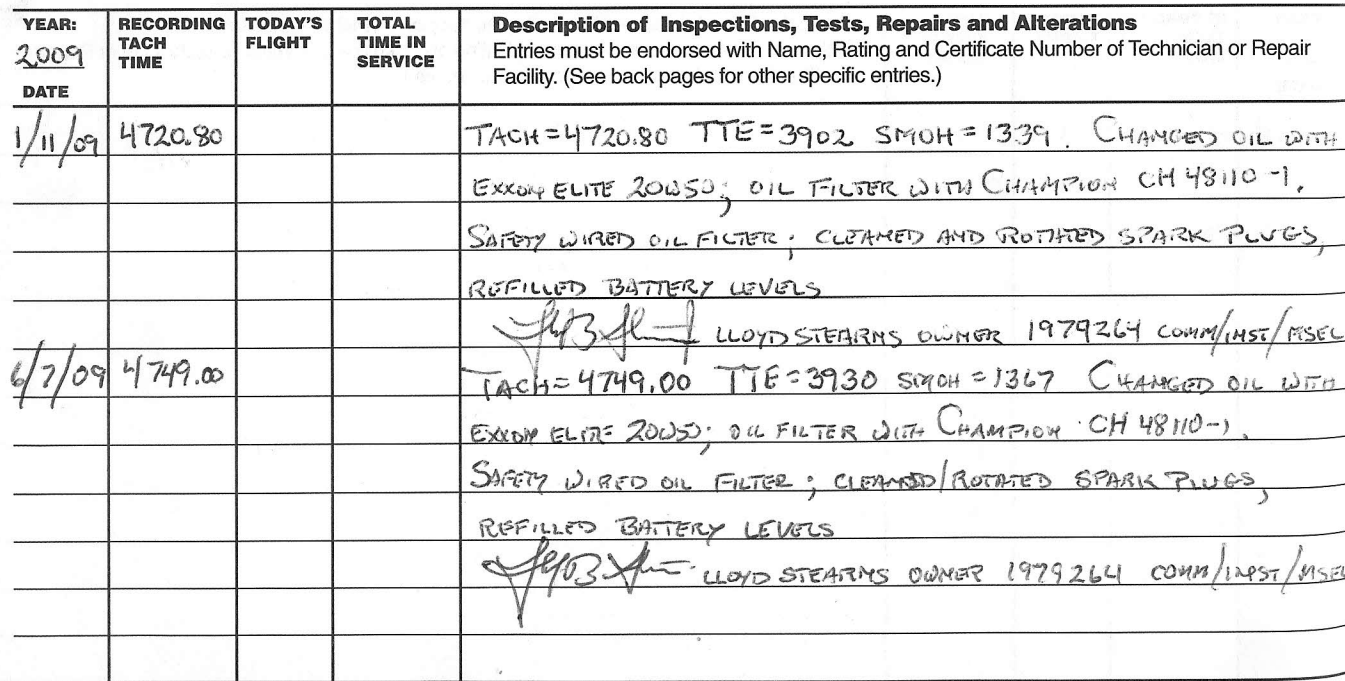 YEAR: 2009
DATE
RECORDING TACH TIME
TODAY'S FLIGHT
TOTAL TIME IN SERVICE
Description of Inspections, Tests, Repairs and Alterations
Entries must be endorsed with Name, Rating and Certificate Number of Technician or Repair
Facility. (See back pages for other specific entries.)
1/11/09 4720.80 TACH=4720.80 TTE=3902 SMOH=1339. CHANGED OIL WITH
EXXON ELITE 20W50; OIL FILTER WITH CHAMPION CH 48110-1.
SAFETY WIRED OIL FILTER; CLEANED AND ROTATED SPARK PLUGS,
REFILLED BATTERY LEVELS
LLOYD STEARNS OWNER 1979264 COMM/INST/ASEL
6/7/09 4749.00 TACH=4749.00 TTE=3930 SMOH=1367 CHANGED OIL WITH
EXXON ELITE 20W50; OIL FILTER WITH CHAMPION CH 48110-1.
SAFETY WIRED OIL FILTER; CLEANED/ROTATED SPARK PLUGS,
REFILLED BATTERY LEVELS
LLOYD STEARNS OWNER 1979264 COMM/INST/ASEL